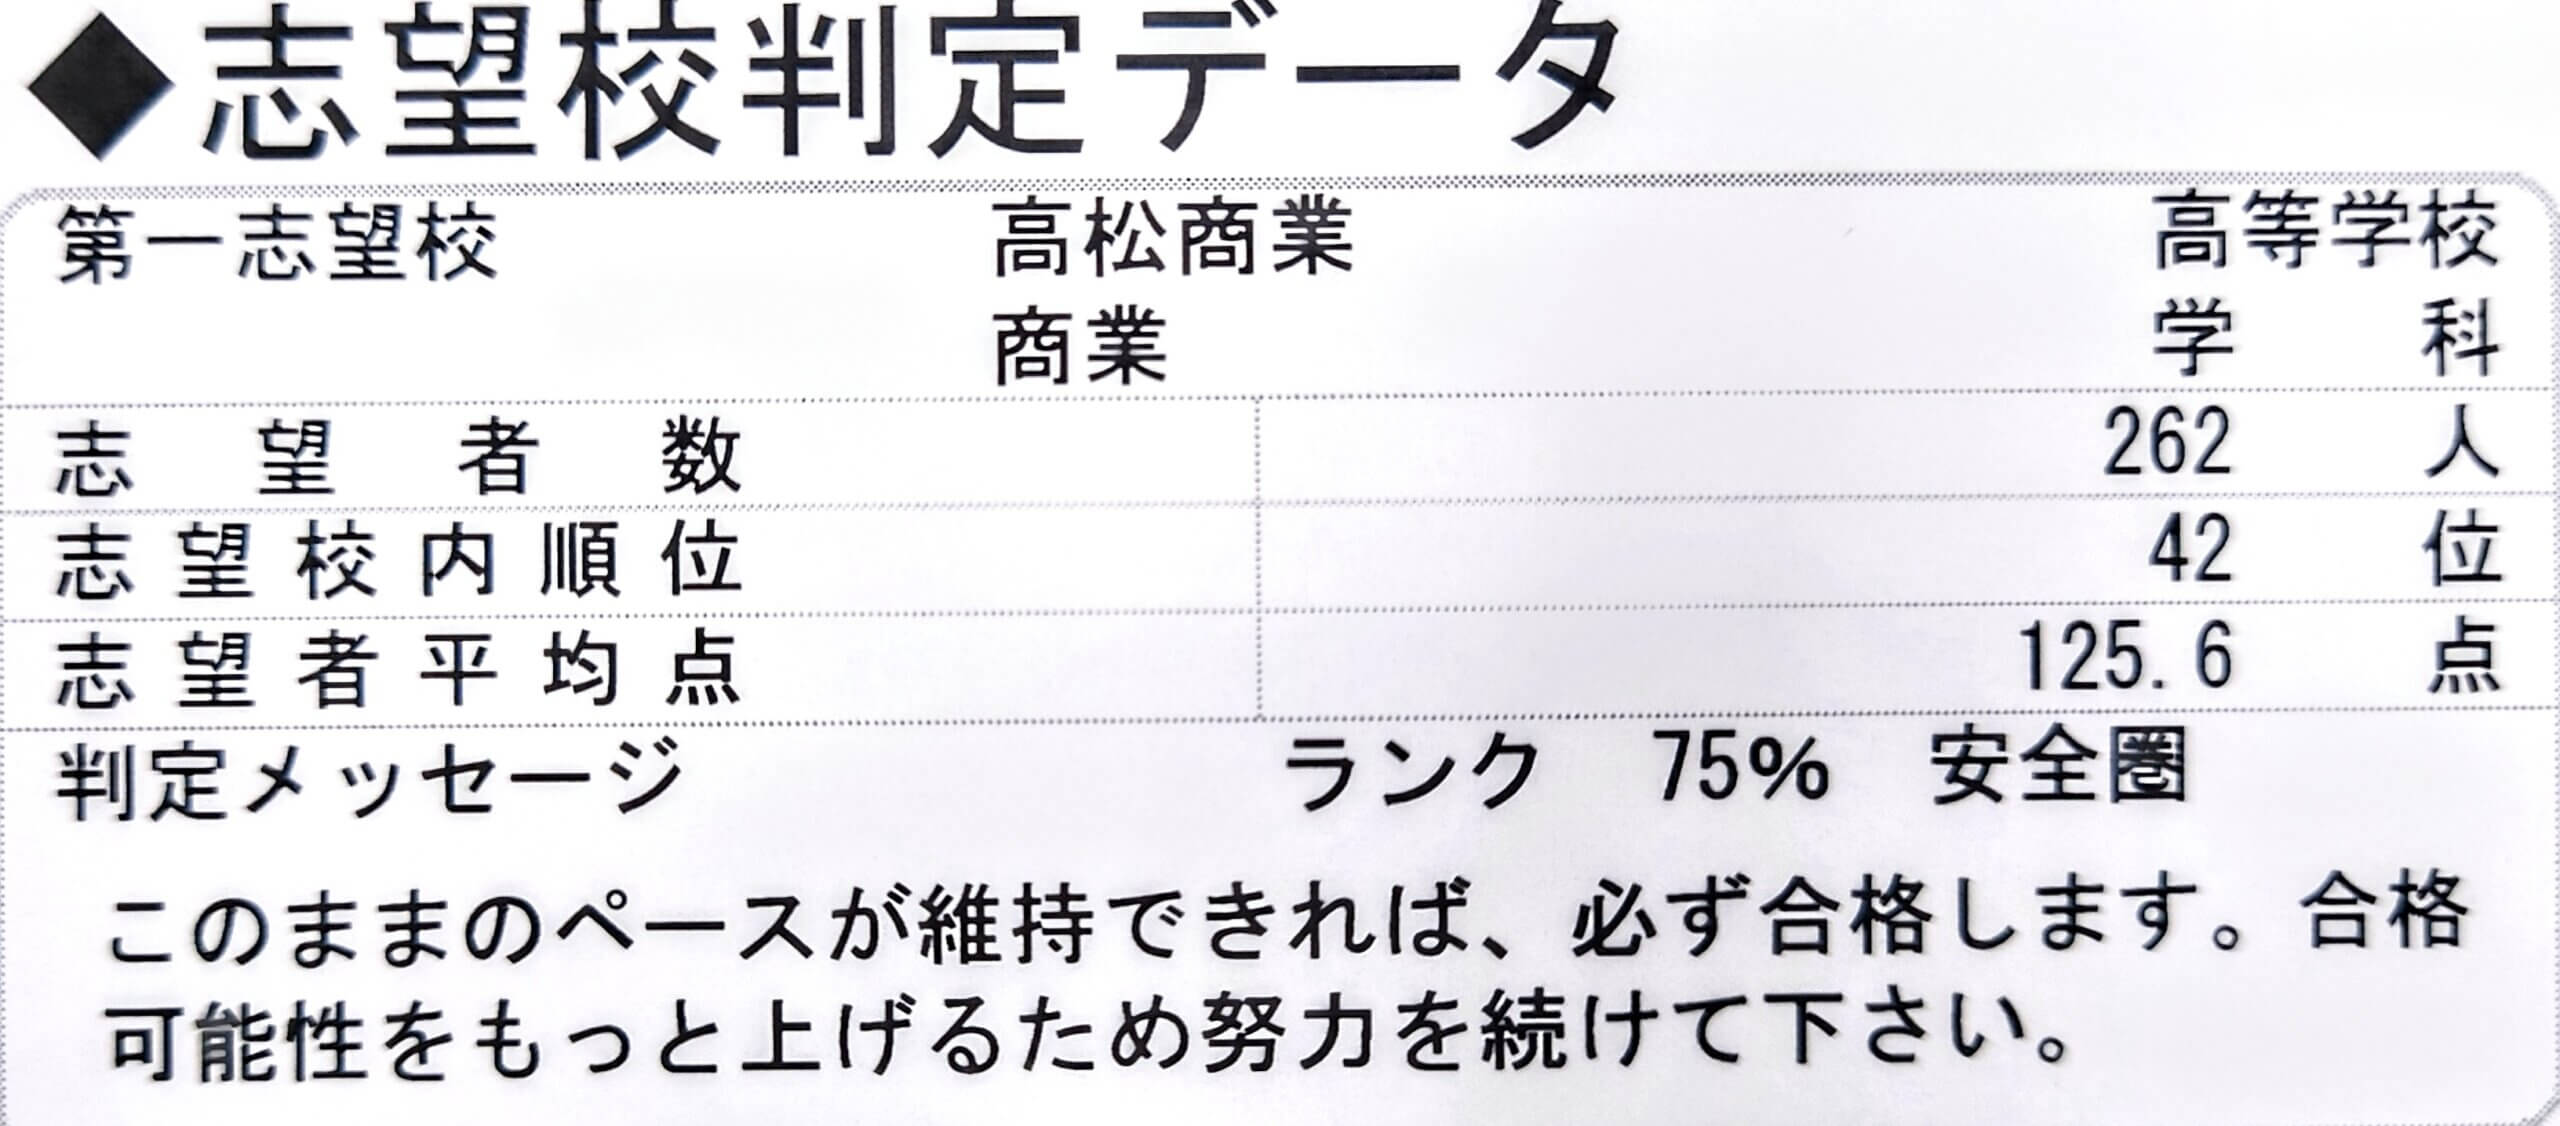 ◆志望校判定データ
第一志望校 高松商業 高等学校
商業 学科
志望者数 262 人
志望校内順位 42 位
志望者平均点 125.6 点
判定メッセージ ランク 75% 安全圏
このままのペースが維持できれば、必ず合格します。合格
可能性をもっと上げるため努力を続けて下さい。